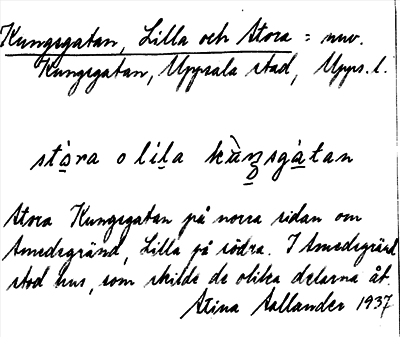 Kungsgatan, Lilla och Stora = nuv.
Kungsgatan, Uppsala stad, Upps. l.
stó̱ra o líḻa kùŋsgàtan
Stora Kungsgatan på norra sidan om
Smedsgränd, Lilla på södra. I Smedsgränd
stod hus, som skilde de olika delarna åt.
Stina Hallander 1937